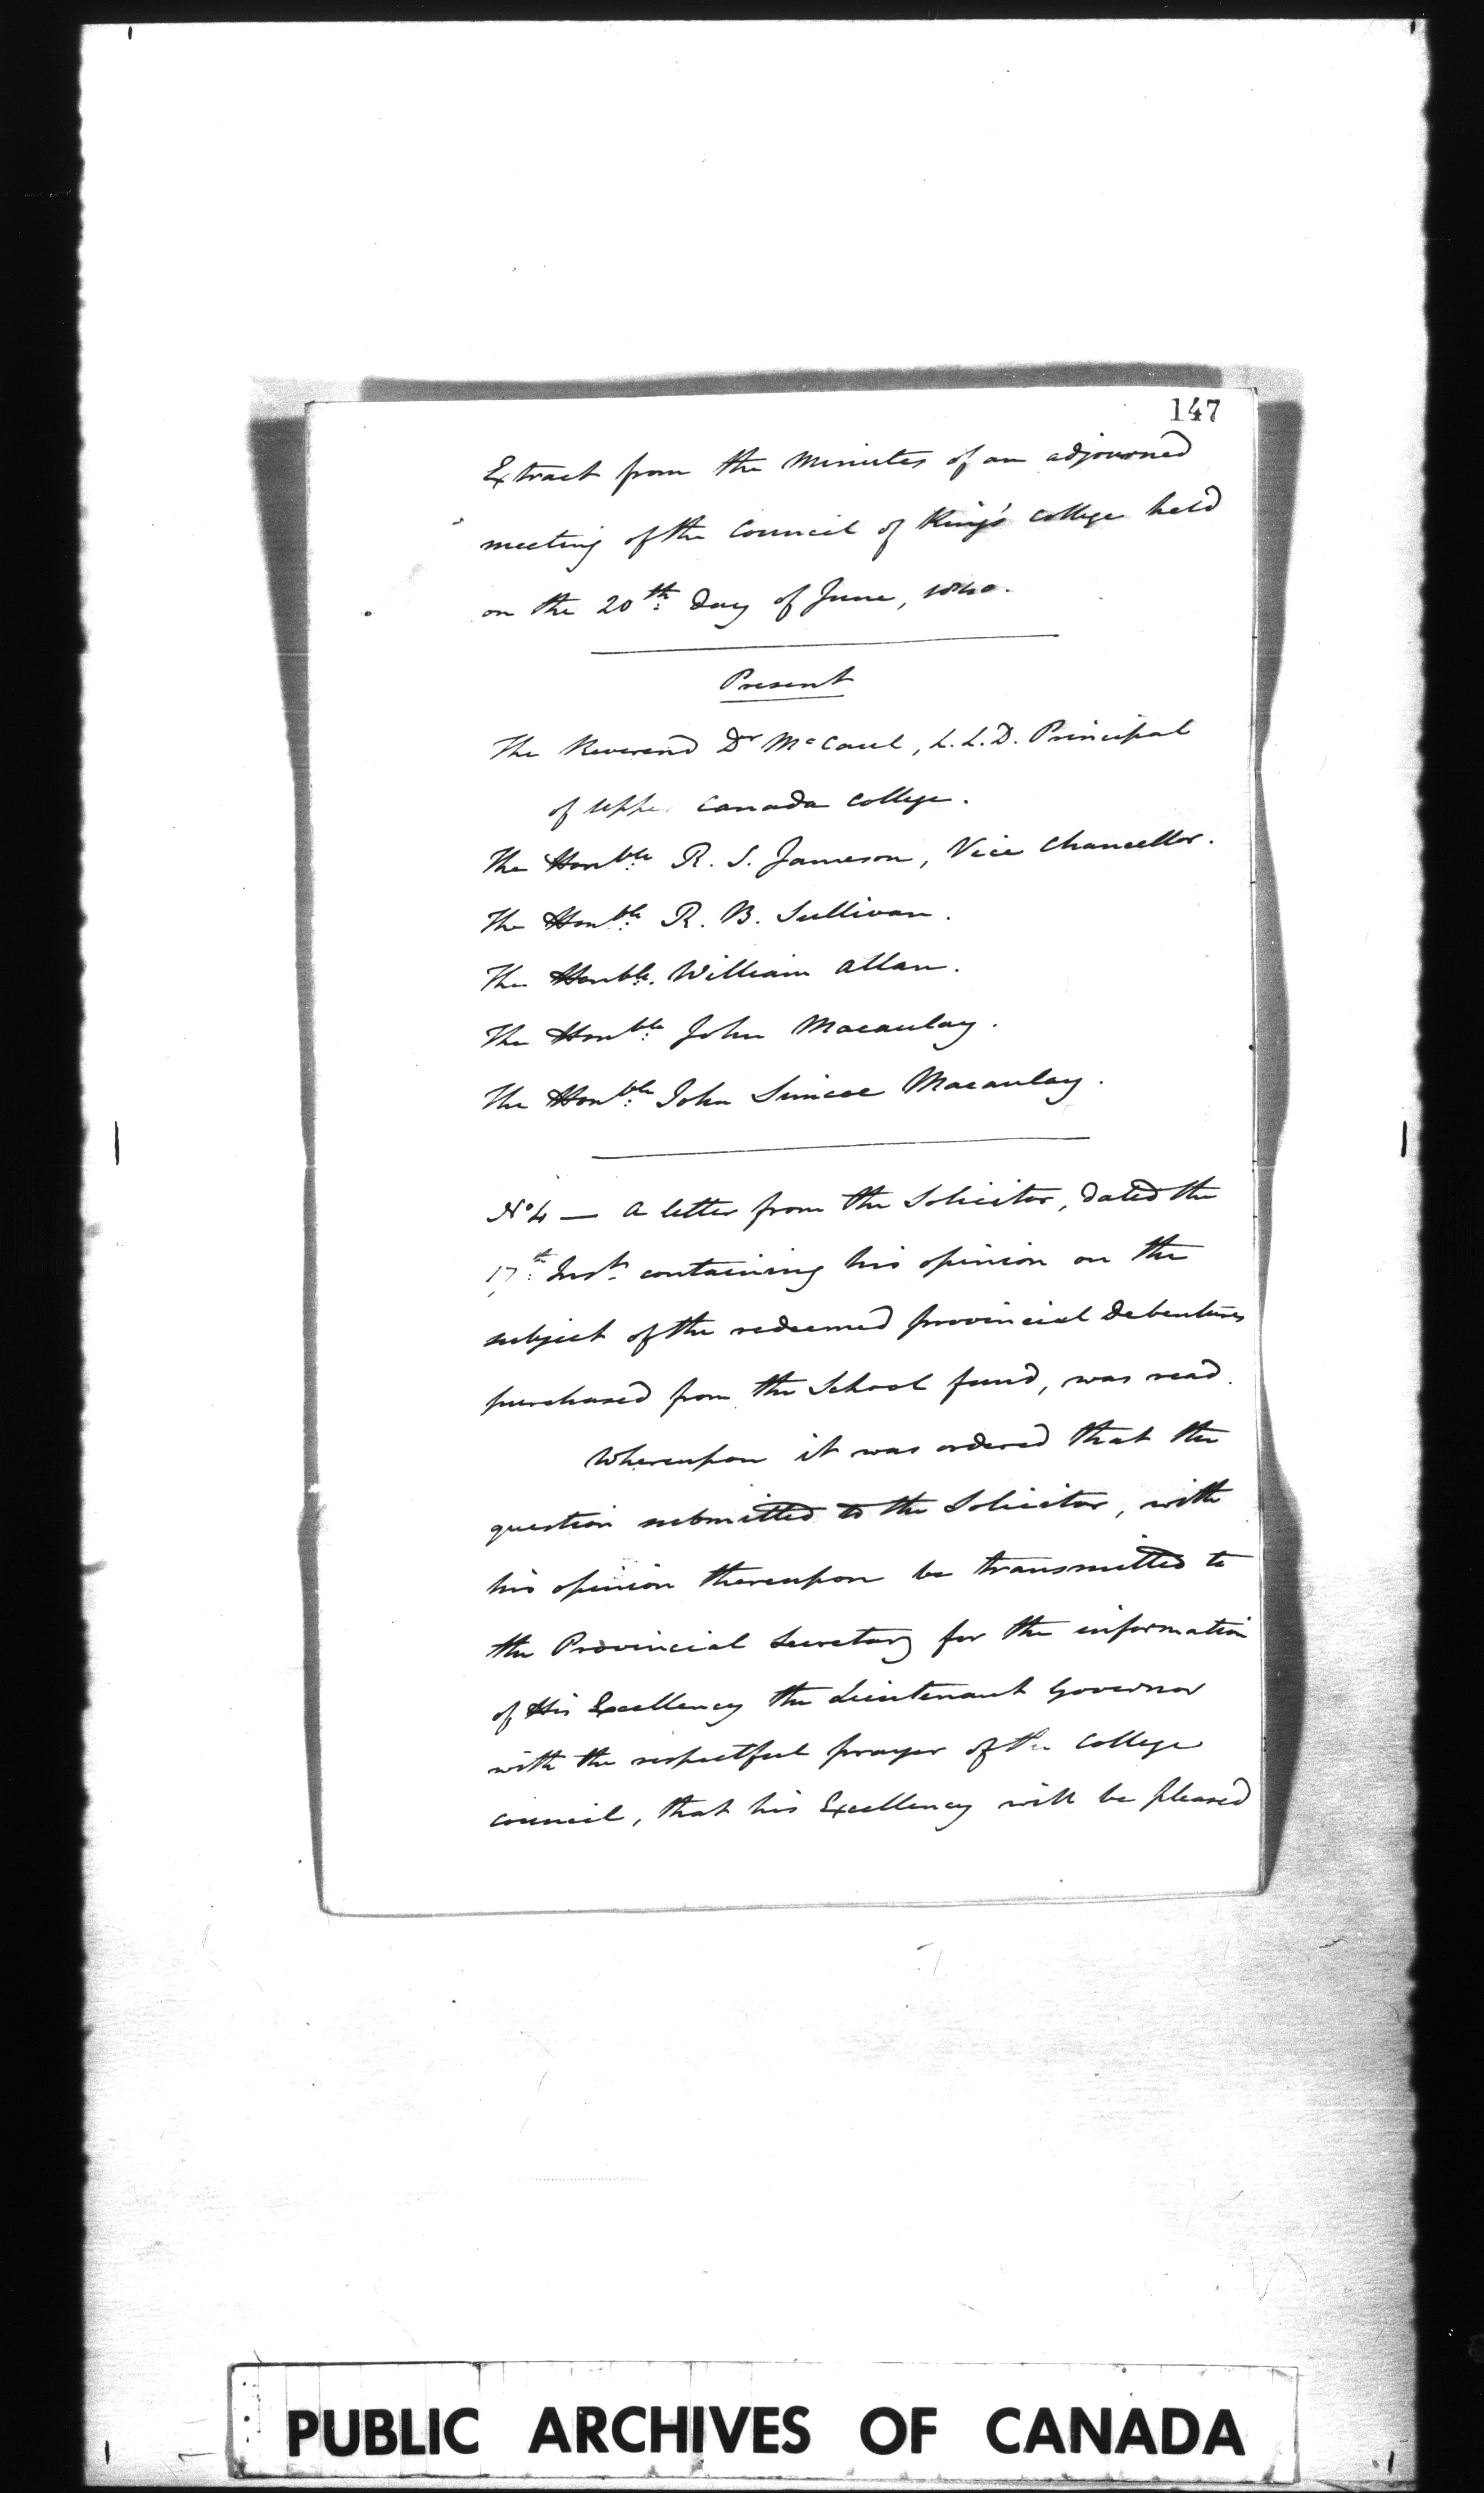 147
Extract from the Minutes of an adjourned
meeting of the Council of King's College held
on the 20th: day of June, 1840.
Present
The Reverend Dr McCaul, L.L.D. Principal
of Upper Canada College.
The Honble: R. S. Jameson, Vice Chancellor.
The Honble: R. B. Sullivan.
The Honble. William Allan.
The Honble: John Macaulay.
The Honble: John Simcoe Macaulay.
No 4 — A letter from the Solicitor, dated the
17th: Inst. containing his opinion on the
subject of the redeemed provincial Debentures
purchased from the School fund, was read.
Whereupon it was ordered that the
question submitted to the Solicitor, with
his opinion thereupon be transmitted to
the Provincial Secretary for the information
of His Excellency the Lieutenant Governor
with the respectful prayer of the College
Council, that his Excellency will be pleased
PUBLIC ARCHIVES OF CANADA